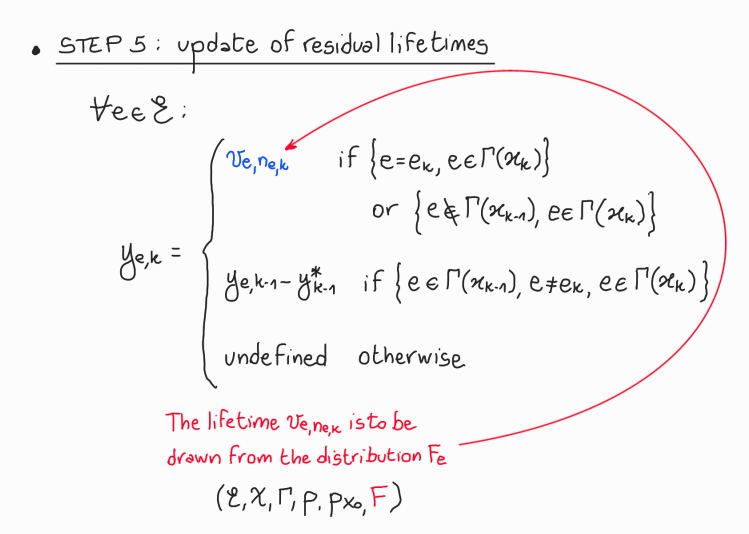 • STEP 5: update of residual lifetimes
∀e∈ℰ:
v_{e,n_{e,k}} if {e=e_k, e∈Γ(x_k)}
or {e∉Γ(x_{k-1}), e∈Γ(x_k)}
y_{e,k} =
y_{e,k-1} - y*_{k-1} if {e∈Γ(x_{k-1}), e≠e_k, e∈Γ(x_k)}
undefined otherwise
The lifetime v_{e,n_{e,k}} is to be
drawn from the distribution F_e
(ℰ, X, Γ, p, p_{x_0}, F)